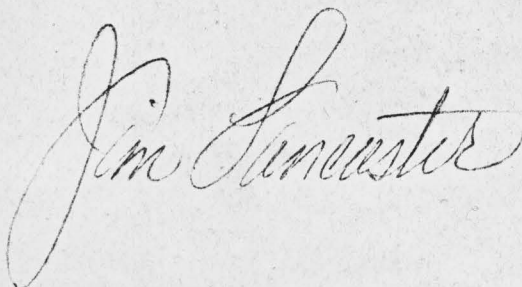 Jim Lancaster